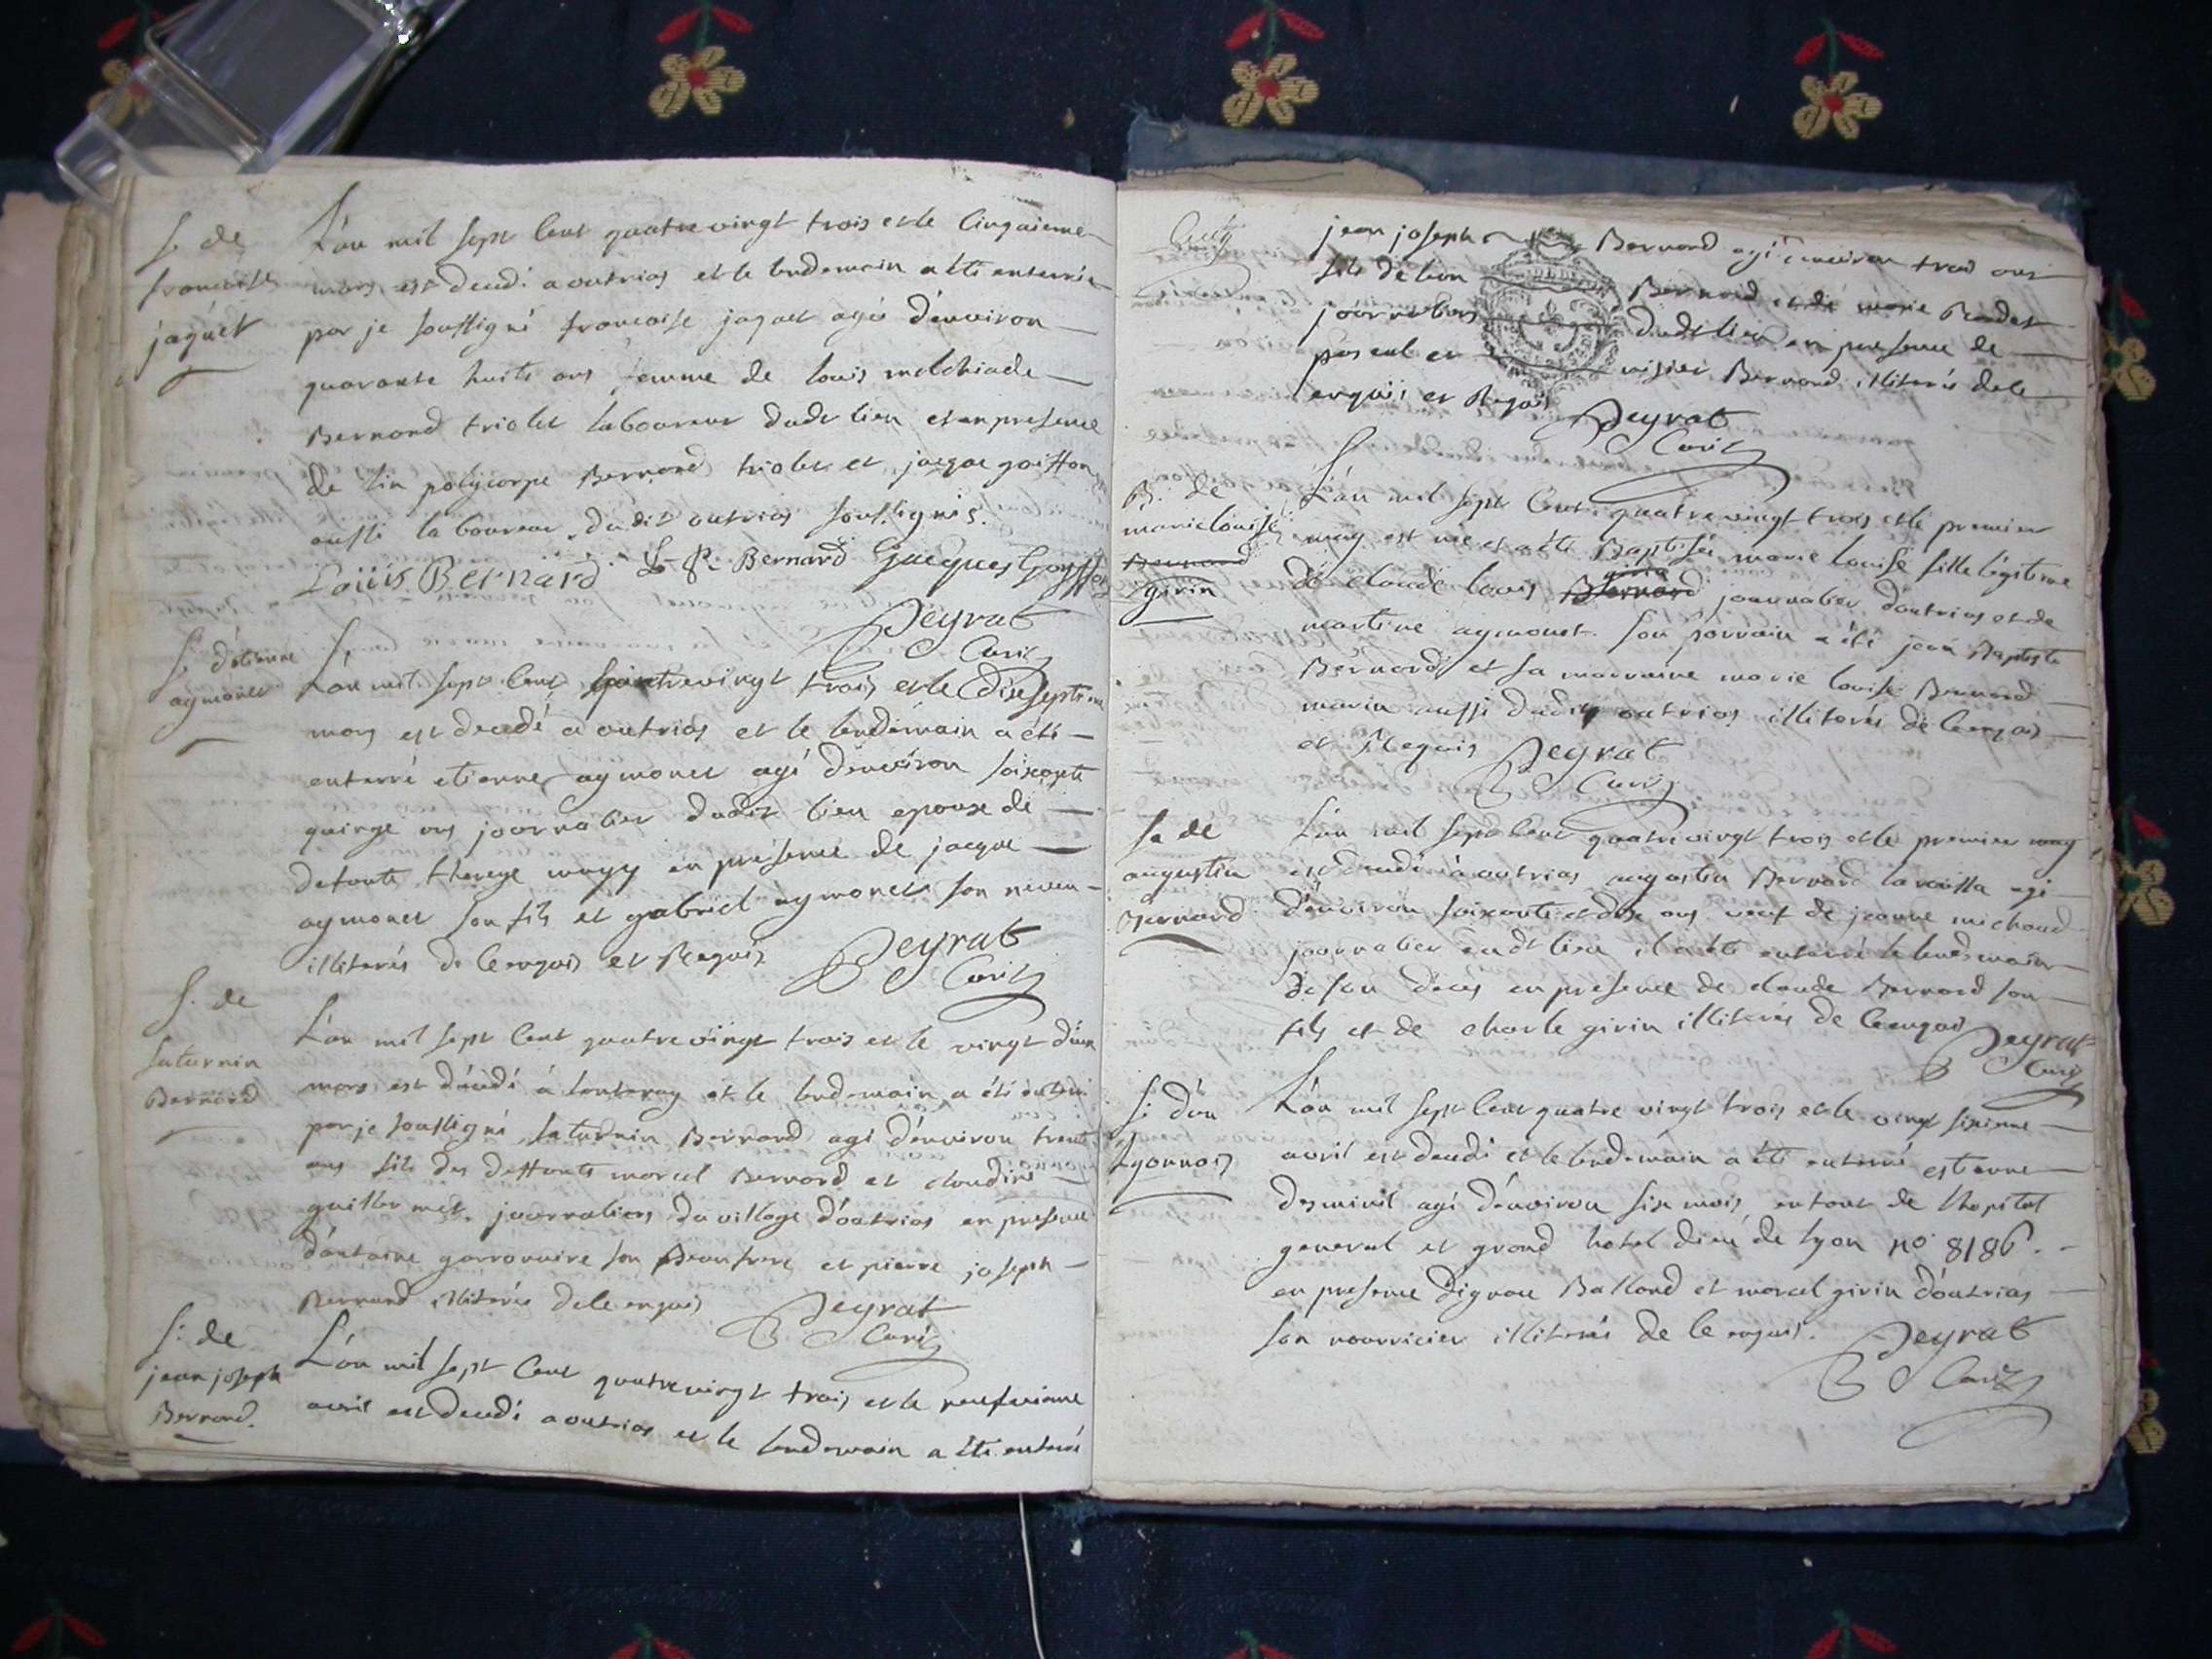 S. de
francoise
jaquet
L'an mil sept cent quatrevingt trois et le cinquieme
mars est decedé a outrias et le lendemain a été enterrée
par je soussigné francoise jaquet agée d'environ
quarante huits ans femme de louis melchiade
Bernard triolet laboureur dudt lieu et en presence
de lin policorpe Bernard triolet et jacque goiffon
aussi laboureur dudit outrias soussignés.
Loüis Bernard L. P. Bernard Jacques Goyffon
Peyrat
Curé
S. d'etienne
aymonet
L'an mil sept cent quatrevingt trois et le dixseptieme
mars est decedé a outrias et le lendemain a été
enterré etienne aymonet agé d'environ soixante
quinze ans journalier dudit lieu epoux de
defunte thereze mugy en présence de jacque
aymonet son fils et gabriel aymonet son neveu
illiterés de ce enquis et Requis Peyrat
Curé
S. de
saturnin
Bernard
L'an mil sept cent quatrevingt trois et le vingt d'eux
mars est décedé à lenteney et le lendemain a été enterré
par je soussigné saturnin Bernard agé d'environ trente
ans fils des deffunts marcel Bernard et claudine
guillermet journaliers du village d'outrias en presence
d'antoine garronaire son Beaufrere et pierre joseph
Bernard illiterés de ce enquis Peyrat
Curé
S: de
jean joseph
Bernard.
L'an mil sept cent quatrevingt trois et le neufvieme
avril est decedé a outrias et le lendemain a été enterré
jean joseph Bernard agé d'environ trois ans
fils de Bernard et de marie Rendet
journaliers dudt lieu en presence de
pascal et Bernard illiterés de ce
enquis et Requis Peyrat
Curé
B: de
marie louise
Bernard
girin
L'an mil sept cent quatrevingt trois et le premier
may est née et a été Baptisée marie louise fille légitime
girin
de claude louis Bernard journalier d'outrias et de
martine aymonet. son parrain a été jean Baptiste
Bernard et sa marraine marie louise Bernard
marin aussi dudit outrias illiterés de ce enquis
et Requis Peyrat
Curé
S. de
augustin
Bernard
L'an mil sept cent quatrevingt trois et le premier may
est decedé à outrias augustin Bernard agé
d'environ soixante et dix ans veuf de jeanne michaud
journalier dudt lieu il a été enterré le lendemain
de son décés en presence de claude Bernard son
fils et de charle girin illiterés de ce enquis Peyrat
Curé
S: d'un
Lyonnois
L'an mil sept cent quatre vingt trois et le vingt sixieme
avril est decedé et le lendemain a été enterré estienne
desminil agé d'environ six mois enfant de l'hopital
general et grand hotel dieu de lyon no. 8186.
en presence d'ignace Balland et marcel girin d'outrias
son nourricier illiterés de ce enquis. Peyrat
Curé